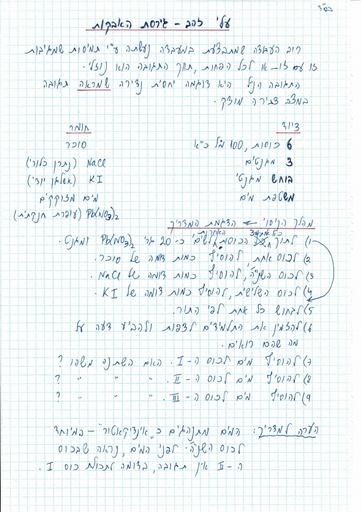 בס"ד
עלי זהב - גירסת האבקות
רוב העבודה שמתבצעת במעבדה נעשתה ע"י תמיסות שמגיבות
זו עם זו - או לכל הפחות, תווך התגובה הוא נוזלי.
התגובה הנ"ל היא דוגמה יחסית נדירה שמראה תגובה
במצב צבירה מוצק.
ציוד חומר
6 כוסות, 100 מ"ל כ"א סוכר
3 מגנטים NaCl (נתרן כלורי)
בוחש מגנטי KI (אשלגן יודי)
משטפת מים מים מזוקקים
Pb(NO3)2 (עופרת חנקתית)
מהלך הניסוי ← הדגמת המדריך
1) לתוך הכוסות לשים כ-20 גר' Pb(NO3)2 ומגנט.
2) לכוס אחת, להוסיף כמות דומה של סוכר.
3) לכוס השניה, להוסיף כמות דומה של NaCl.
4) לכוס השלישית, להוסיף כמות דומה של KI.
5) לבחוש כל אחת לפי התור.
6) להזמין את התלמידים לצפות ולהביע דעה על
מה שהם רואים.
7) להוסיף מים לכוס ה-I. האם השתנה משהו?
8) להוסיף מים לכוס ה-II. " " " ?
9) להוסיף מים לכוס ה-III. " " " ?
הערה למדריך: המים מתנהגים כ"אינדיקטור" - במיוחד
לכוס השניה. לפני המים, נראה שבכוס
ה-II אין תגובה, בדומה לתכולת כוס I.